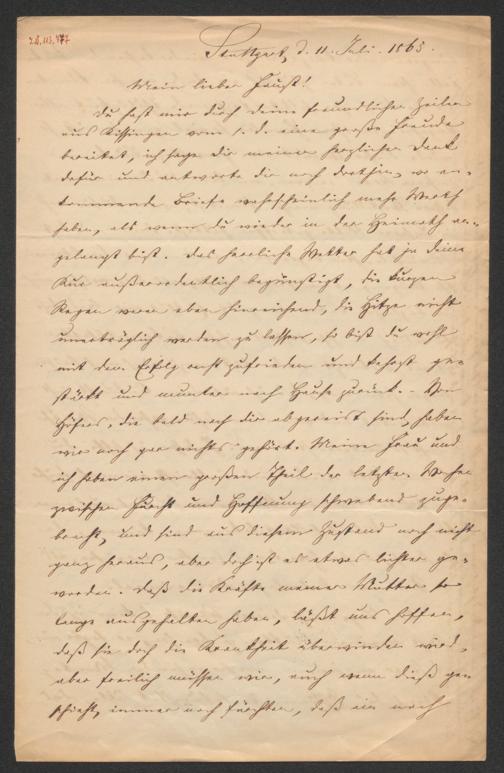 Stuttgart, d. 11. Juli. 1865.
Mein lieber Faust!
Du hast mir durch deine freundlichen Zeilen
aus Kissingen vom 1. d. eine große Freude
bereitet, ich sage dir meinen herzlichen Dank
dafür und antworte dir noch dorthin, wo an-
kommende Briefe wahrscheinlich mehr Werth
haben, als wenn du wieder in der Heimath an-
gelangt bist. Das herrliche Wetter hat ja deine
Kur außerordentlich begünstigt, die kurzen
Regen waren eben hinreichend, die Hitze nicht
unerträglich werden zu lassen, so bist du wohl
mit dem Erfolg recht zufrieden und kehrst ge-
stärkt und munter nach Hause zurück. – Von
Höfers, die bald nach dir abgereist sind, haben
wir noch gar nichts gehört. Meine Frau und
ich haben einen großen Theil der letzten Wochen
zwischen Furcht und Hoffnung schwebend zuge-
bracht, und sind aus diesem Zustand noch nicht
ganz heraus, aber doch ist es etwas lichter ge-
worden. Daß die Kräfte meiner Mutter so
lange ausgehalten haben, läßt uns hoffen,
daß sie doch die Krankheit überwinden wird,
aber freilich müssen wir, auch wenn dieß ge-
schieht, immer noch fürchten, daß ein noch